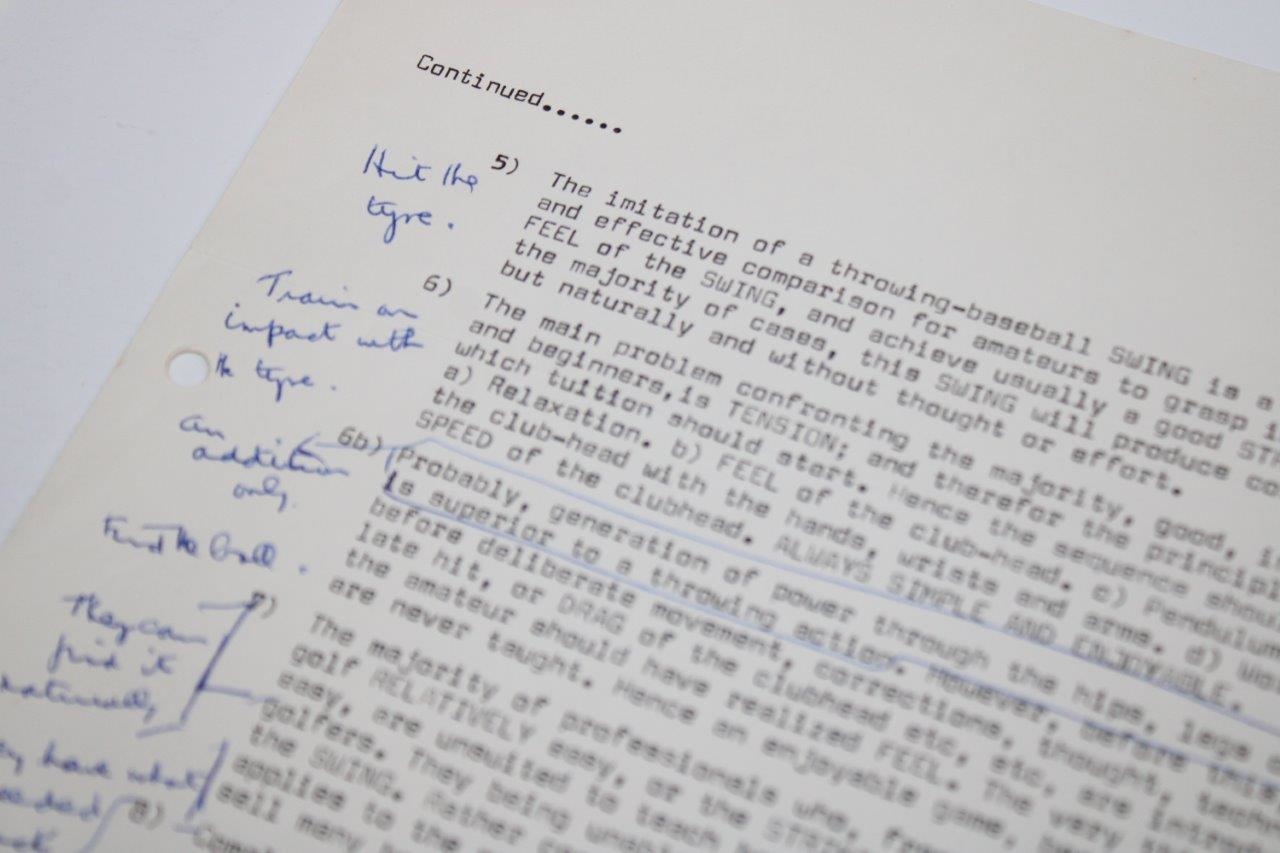 Continued......
Hit the
tyre.
5) The imitation of a throwing-baseball SWING is a
and effective comparison for amateurs to grasp
FEEL of the SWING, and achieve usually a good
the majority of cases, this SWING will produce
but naturally and without thought or effort.
Train on
impact with
the tyre.
6) The main problem confronting the majority, good,
and beginners,is TENSION; and therefor the
which tuition should start. Hence the sequence
a) Relaxation. b) FEEL of the club-head. c) Pendulum
the club-head with the hands, wrists and arms. d)
SPEED of the clubhead. ALWAYS SIMPLE AND ENJOYABLE.
an
addition
only.
6b) Probably, generation of power through the hips, legs
is superior to a throwing action. However, before this
before deliberate movement, corrections, thought,
late hit, or DRAG of the clubhead etc, etc, are
the amateur should have realized FEEL. The very
are never taught. Hence an enjoyable game,
Find the ball.
They can
find it
naturally
7) The majority of professionals who,
golf RELATIVELY easy, or the
easy, are unsuited to teach
golfers. They being
the SWING. Rather
applies to the
sell many
have what
8)